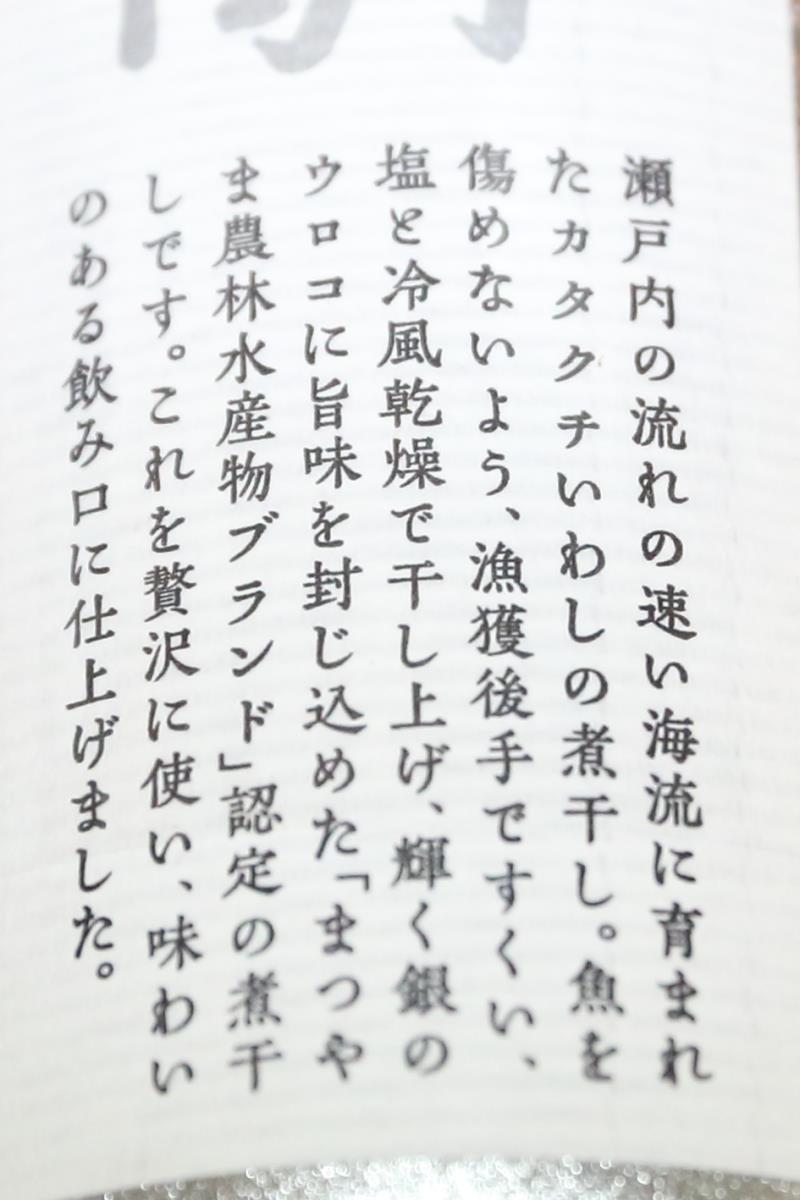 瀬戸内の流れの速い海流に育まれ
たカタクチいわしの煮干し。魚を
傷めないよう、漁獲後手ですくい、
塩と冷風乾燥で干し上げ、輝く銀の
ウロコに旨味を封じ込めた「まつや
ま農林水産物ブランド」認定の煮干
しです。これを贅沢に使い、味わい
のある飲み口に仕上げました。